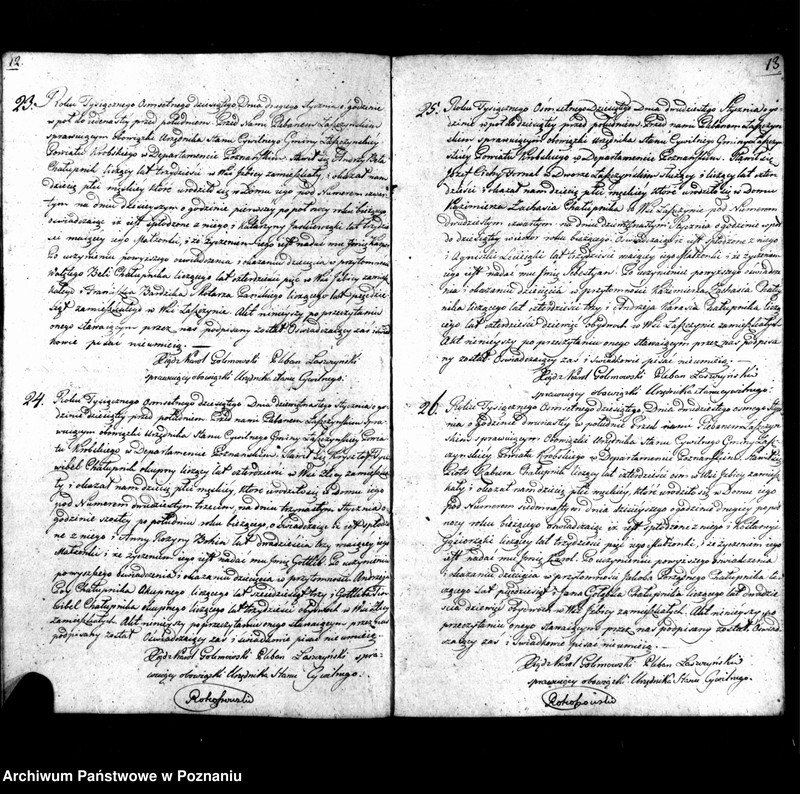 12.
23. Roku Tysiącznego Osmsetnego dziesiątego Dnia drugiego Stycznia o godzinie
w poł do iedenasty przed południem. Przed Nami Plebanem Łaszczyńskim
sprawuiącym obowiązki Urzędnika Stanu Cywilnego Gminy Łaszczyńskiey
Powiatu Krobskiego w Departamencie Poznańskim. Stawił się
Chałupnik liczący lat trzydzieści w Wsi zamieszkały, i okazał nam
dziecię płci męskiey które urodziło się w Domu iego pod Numerem
na dniu dzisieyszym o godzinie pierwszy po poł nocy roku bieżącego
oświadczaiąc iż iest spłodzone z niego i Katarzyny lat
maiący iego Małżonki, i że życzeniem iego iest nadać mu Imię
Po uczynieniu powyższego oświadczenia i okazaniu dziecięcia w przytomności
Chałupnika liczącego lat czterdzieści w Wsi
i Franciszka liczącego lat
zamieszkałego w Wsi Łaszczynie. Akt ninieyszy po przeczytaniu
onego stawaiącym przez nas podpisany został Oświadczaiący zaś i świad-
kowie pisać nieumieią. —
Xiądz Karol Golimowski Pleban Łaszczyński
sprawuiący obowiązki Urzędnika Stanu Cywilnego.
24. Roku Tysiącznego Osmsetnego dziesiątego Dnia dziewiętnastego Stycznia o go-
dzinie dziesiąty przed południem. Przed nami Plebanem Łaszczyńskim spra-
wuiącym obowiązki Urzędnika Stanu Cywilnego Gminy Łaszczyńskiey Powia-
tu Krobskiego w Departamencie Poznańskim. Stawił się Krzysztof
Chałupnik okupny liczący lat czterdzieści w Wsi zamieszka-
ły i okazał nam dziecię płci męskiey, które urodziło się w Domu iego
pod Numerem dwudziestym trzecim, na dniu trzynastym Stycznia o
godzinie szósty po południu roku bieżącego, oświadczaiąc iż iest spłodzo-
ne z niego i Anny Rozyny lat dwadzieścia trzy maiący iego
Małżonki i że życzeniem iego iest nadać mu Imię Gottlib. Po uczynieniu
powyższego oświadczenia i okazaniu dziecięcia w przytomności Andrzeia
Chałupnika Okupnego liczącego lat sześćdziesiąt trzy i Gottlieba
Chałupnika okupnego liczącego lat trzydzieści obydwóch w Wsi
zamieszkałych. Akt ninieyszy po przeczytaniu onego stawaiącym przez nas
podpisany został Oświadczaiący zaś i świadkowie pisać nieumieią. —
Xiądz Karol Golimowski Pleban Łaszczyński spra-
wuiący obowiązki Urzędnika Stanu Cywilnego.
Rokossowski
13
25. Roku Tysiącznego Osmsetnego Dziesiątego Dnia dwudziestego Stycznia o go-
dzinie w poł do dziesiąty przed południem. Przed nami Plebanem Łaszczyń-
skim sprawuiącym obowiązki Urzędnika Stanu Cywilnego Gminy Łaszczyń-
skiey Powiatu Krobskiego w Departamencie Poznańskim. Stawił się
Józef Cichy Fornal w Dworze Łaszczyńskim służący i liczący lat czter-
dzieści i okazał nam dziecię płci męskiey które urodziło się w Domu
Kazimierza Zachasia Chałupnika w Wsi Łaszczynie pod Numerem
dwudziestym czwartym na dniu dziewiętnastym Stycznia o godzinie w poł
do dziesiąty wieczór roku bieżącego. Oświadczaiąc iż iest spłodzone z niego
i Agnieszki lat trzydzieści maiący iego Małżonki, i że życzeniem
iego iest nadać mu Imię Sebestyan. Po uczynieniu powyższego oświadcze-
nia i okazaniu dziecięcia w przytomności Kazimierza Zachasia Chału-
pnika liczącego lat czterdzieści trzy i Andrzeja Karasia Chałupnika liczą-
cego lat czterdzieści dziewięć obydwóch w Wsi Łaszczynie zamieszkałych.
Akt ninieyszy po przeczytaniu onego stawaiącym przez nas podpisa-
ny został Oświadczaiący zaś i świadkowie pisać nieumieią. —
Xiądz Karol Golimowski Pleban Łaszczyński
sprawuiący obowiązki Urzędnika Stanu Cywilnego.
26. Roku Tysiącznego Osmsetnego dziesiątego, Dnia dwudziestego osmego Stycz-
nia o godzinie dwunasty w południe. Przed nami Plebanem Łaszczyń-
skim sprawuiącym Obowiązki Urzędnika Stanu Cywilnego Gminy Łasz-
czyńskiey Powiatu Krobskiego w Departamencie Poznańskim. Stawił się
Piotr Kabura Chałupnik liczący lat czterdzieści osm w Wsi zamiesz-
kały i okazał nam dziecię płci męskiey, które urodziło się w Domu iego
pod Numerem siedmnastym dnia dzisieyszego o godzinie drugiey po pół
nocy roku bieżącego oświadczaiąc iż iest spłodzone z niego i
liczący lat trzydzieści pięć iego Małżonki, i że życzeniem iego
iest nadać mu Imię Karol. Po uczynieniu powyższego oświadczenia
i okazaniu dziecięcia w przytomności Jakóba Chałupnika li-
czącego lat pięćdziesiąt i Jana Chałupnika liczącego lat dwadzie-
ścia dziewięć obydwóch w Wsi zamieszkałych. Akt ninieyszy po
przeczytaniu onego stawaiącym przez nas podpisany został Oświad-
czaiący zaś i Świadkowie pisać nieumieią.
Xiądz Karol Golimowski Pleban Łaszczyński
sprawuiący obowiązki Urzędnika Stanu Cywilnego.
Rokossowski
Archiwum Państwowe w Poznaniu